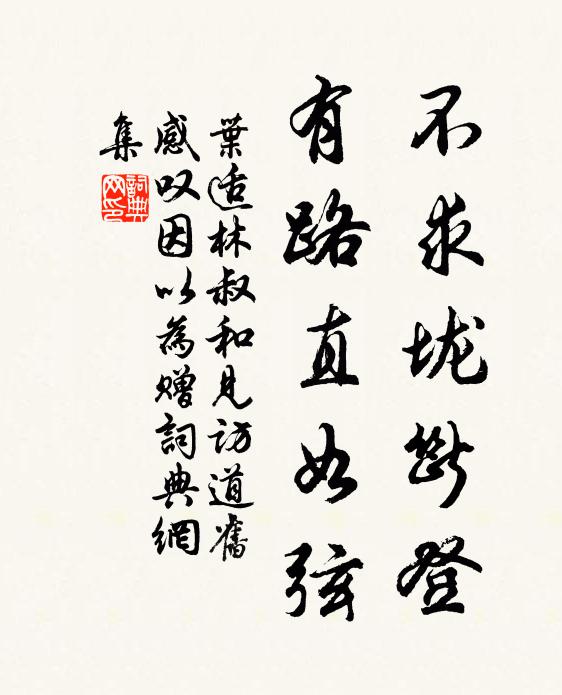 不求垅斷登
有路直如弦
葉适林叔和見訪道舊
感叹因以為贈詞典網
集
詞典
网印